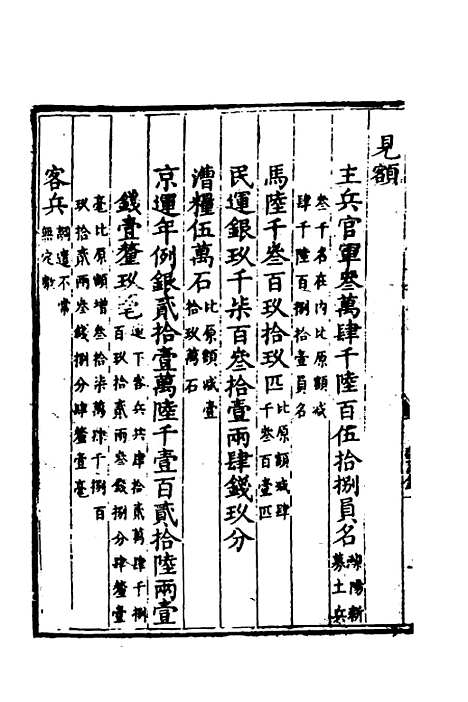 見額
主兵官軍叄萬肆千陸百伍拾捌員名 灤陽新募土兵
叁千名在内比原額減
肆千陸百捌拾壹員名
馬陸千叄百玖拾玖匹 比原額減肆千叄百壹匹
民運銀玖千柒百叄拾壹兩肆錢玖分
漕糧伍萬石 比原額減壹拾玖萬石
京運年例銀貳拾壹萬陸千壹百貳拾陸兩壹
錢壹釐玖毫 連下客兵共肆拾貳萬肆千捌百玖拾貳兩叄錢捌分肆釐壹
毫比原額增叄拾柒萬肆千捌百
玖拾貳兩叄錢捌分肆釐壹毫
客兵 調遣不常無定數